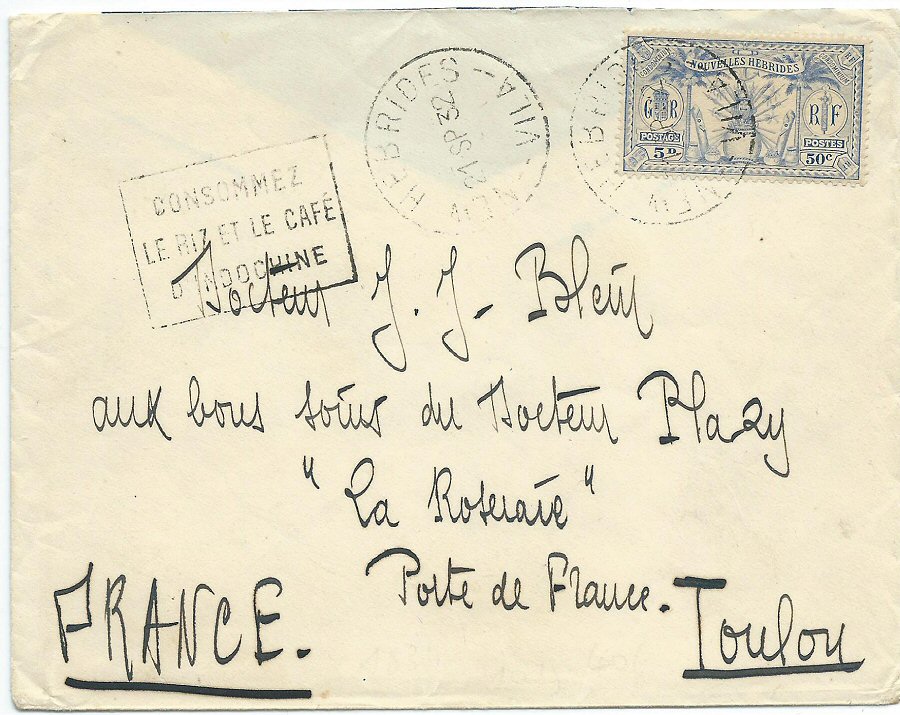 VILA - NEW HEBRIDES -
21 SP 32
NOUVELLES HEBRIDES
CONDOMINIUM
G R
R F
POSTAGE
POSTES
5D
50c
CONSOMMEZ
LE RIZ ET LE CAFÉ
D'INDOCHINE
Docteur J. J. Blein
aux bons soins du Docteur Blazy
"La Roseraie"
Porte de France.
FRANCE.
Toulon